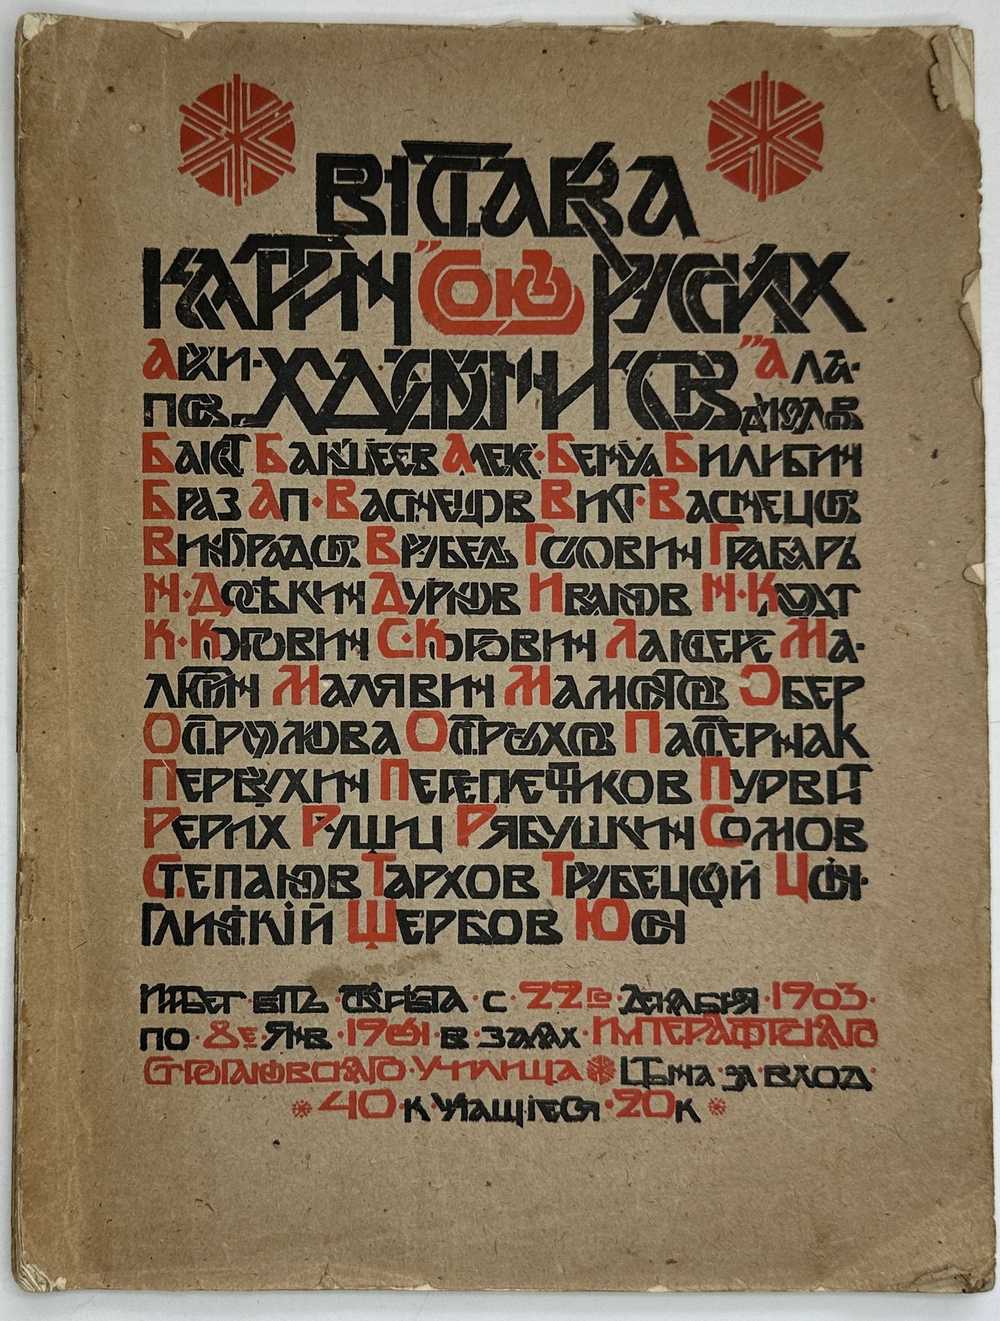 Выставка
картин "Союз русских
Архи- художников" Ала-
пов. Адамов
Бакст Бакшеев Алек. Бенуа Билибин
Браз Ап. Васнецов Викт. Васнецов
Виноградов Врубель Головин Грабарь
Н. Досѣкин Дурнов Иванов Н. Клодт
К. Коровин С. Коровин Лансере Ма-
лютин Малявин Мамонтов Обер
Остроумова Остроухов Пастернак
Первухин Переплетчиков Пурвит
Рерих Рущиц Рябушкин Сомов
Степанов Тархов Трубецкой Цион-
глинскій Щербов Юон
Имѣет быть открыта с 22го декабря 1903.
по 8е Янв. 1904 в залах Императорскаго
Строгановскаго Училища Цѣна за вход
40 к учащіеся 20 к